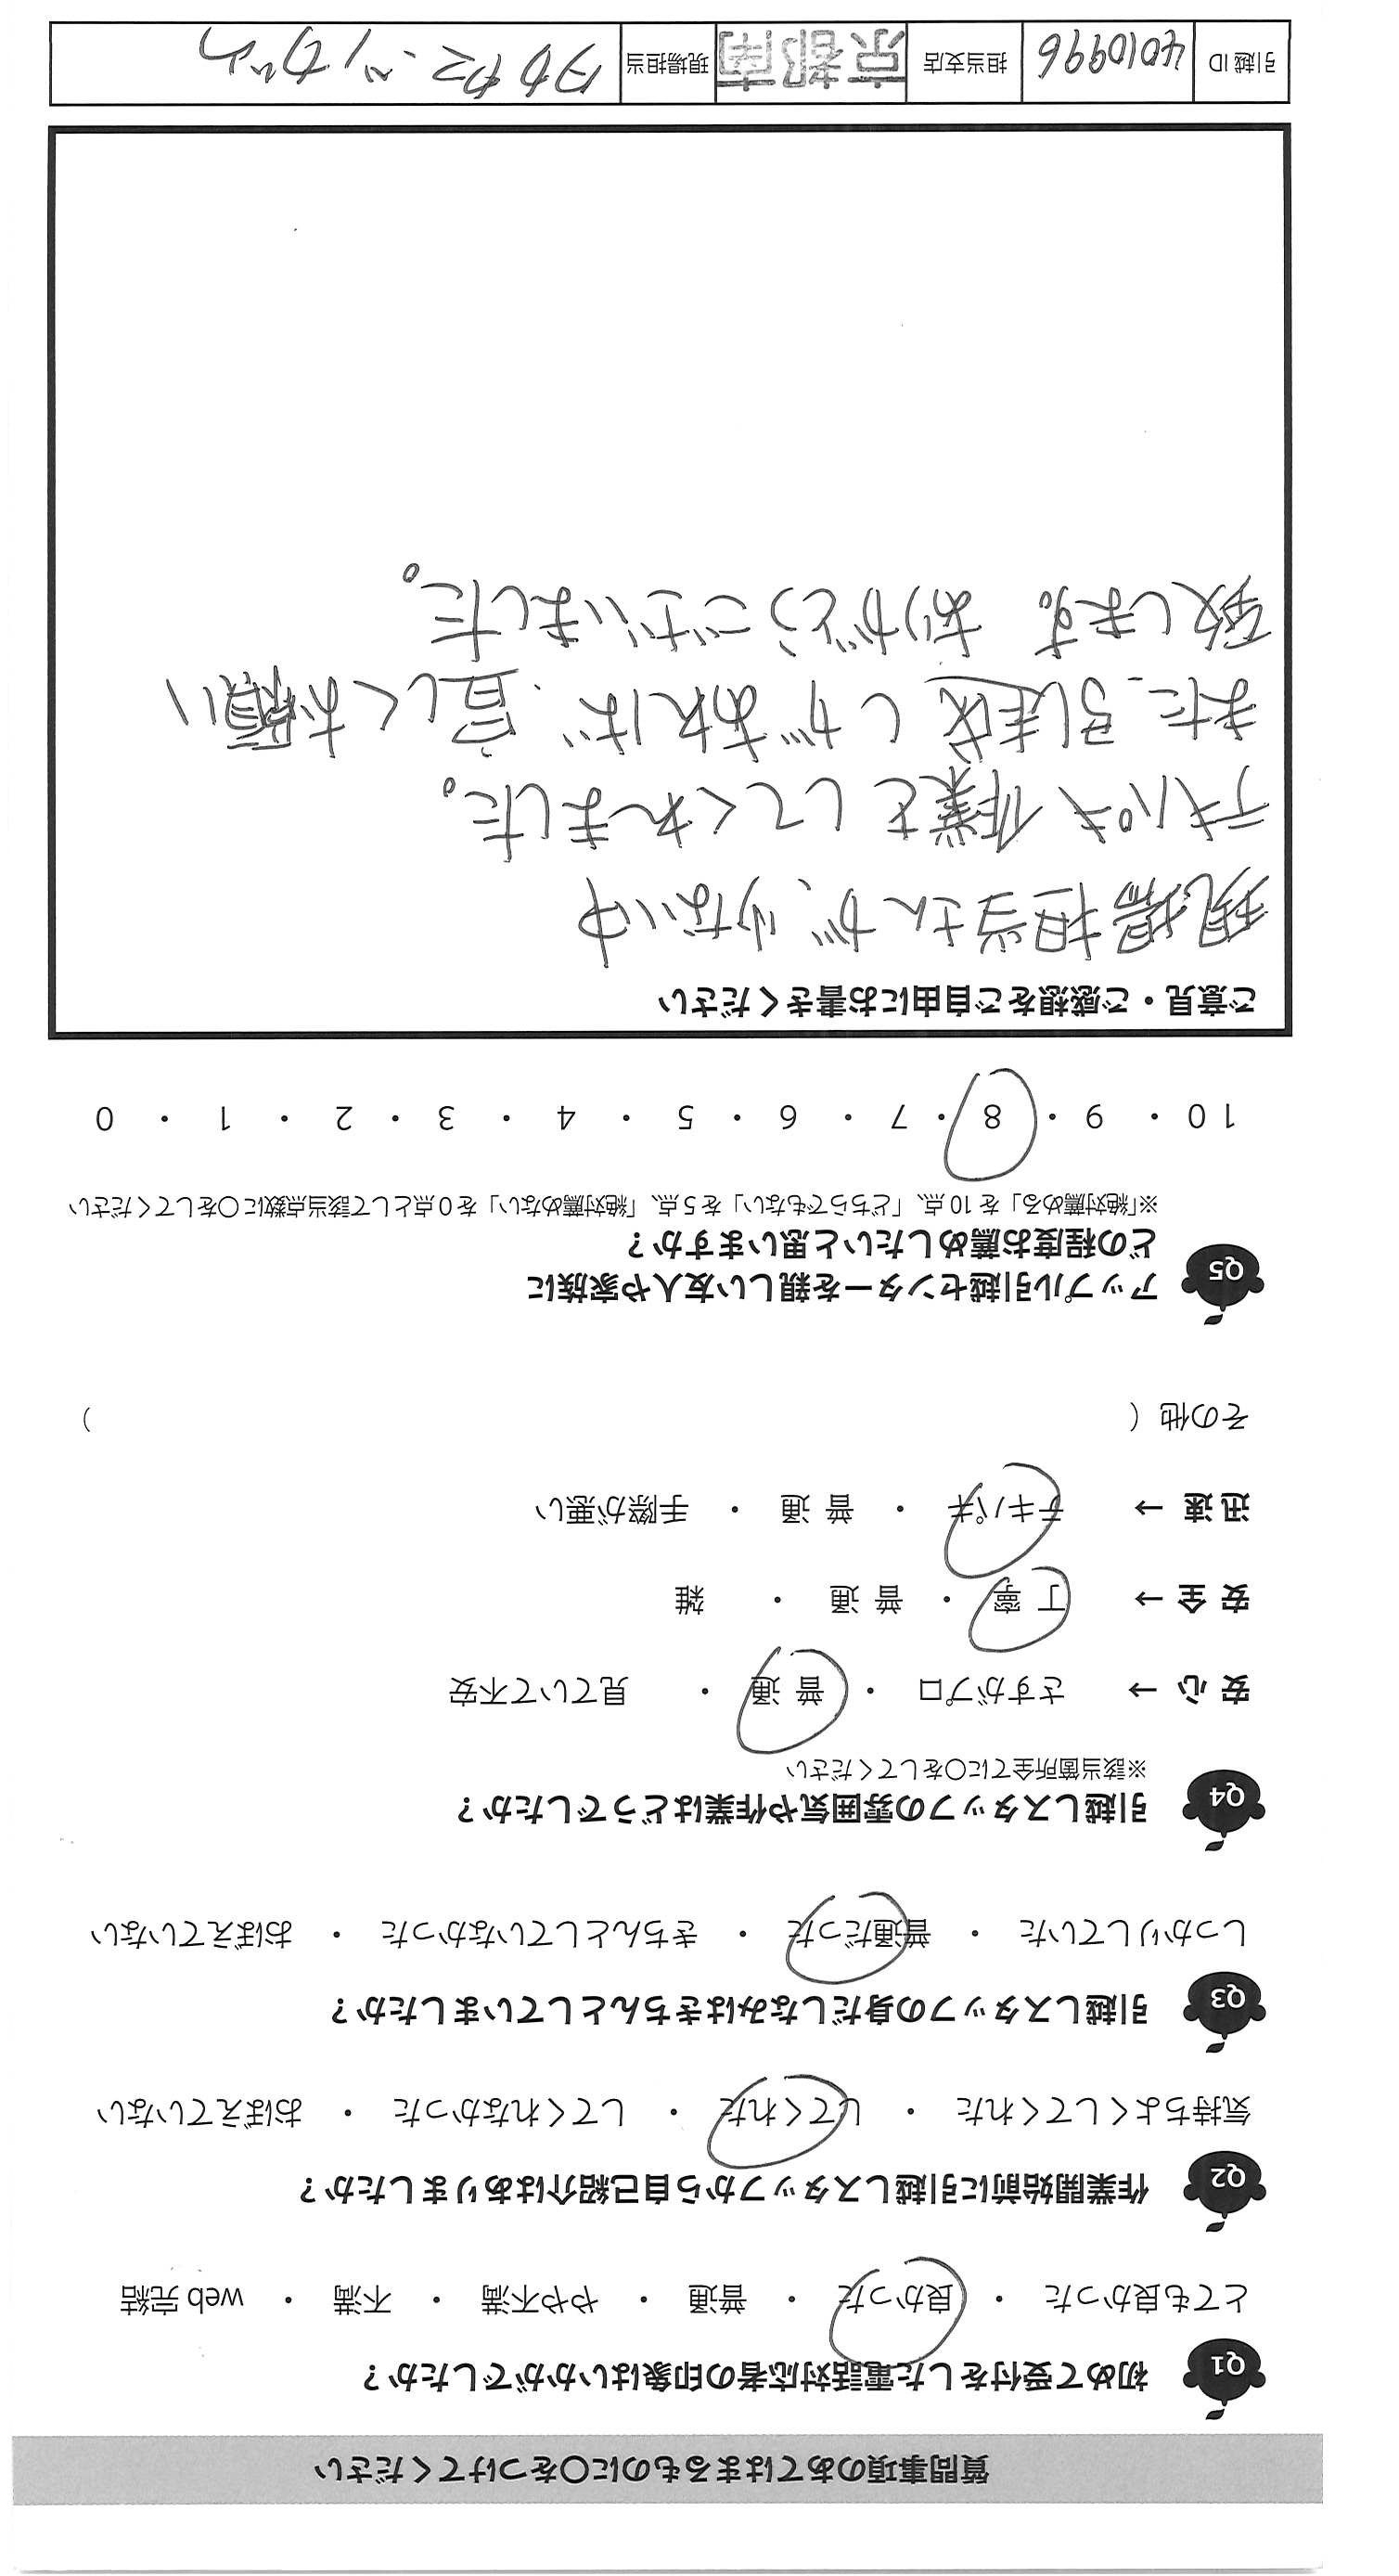 質問事項のあてはまるものに〇をつけてください
Q1 初めて受付をした電話対応者の印象はいかがでしたか？
とても良かった ・ 良かった ・ 普通 ・ やや不満 ・ 不満 ・ web 完結
Q2 作業開始前に引越しスタッフから自己紹介はありましたか？
気持ちよくしてくれた ・ してくれた ・ してくれなかった ・ おぼえていない
Q3 引越しスタッフの身だしなみはきちんとしていましたか？
しっかりしていた ・ 普通だった ・ きちんとしていなかった ・ おぼえていない
Q4 引越しスタッフの雰囲気や作業はどうでしたか？
※該当箇所全てに〇をしてください
安 心 → さすがプロ ・ 普 通 ・ 見ていて不安
安 全 → 丁 寧 ・ 普 通 ・ 雑
迅 速 → テキパキ ・ 普 通 ・ 手際が悪い
その他（ ）
Q5 アップル引越センターを親しい友人や家族に
どの程度お薦めしたいと思いますか？
※「絶対薦める」を 10 点、「どちらでもない」を 5 点、「絶対薦めない」を 0 点として該当点数に〇をしてください
10 ・ 9 ・ 8 ・ 7 ・ 6 ・ 5 ・ 4 ・ 3 ・ 2 ・ 1 ・ 0
ご意見・ご感想をご自由にお書きください
現場担当さんが、少ない中
テキパキ作業をしてくれました。
また、引越しがあれば、宜しくお願い
致します。ありがとうございました。
引越 ID 4010996 担当支店 京都南 現場担当